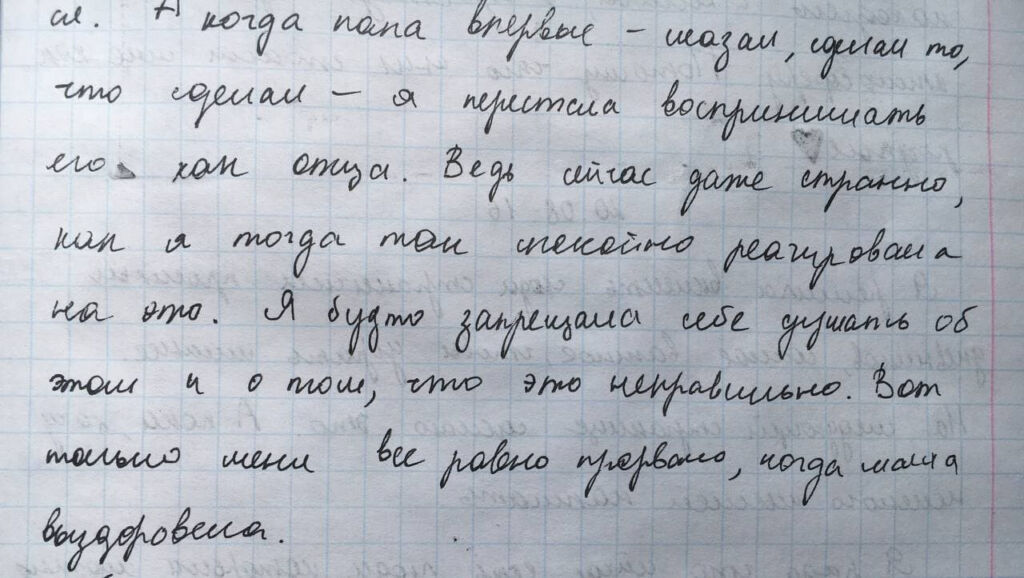 ся. А когда папа впервые – сказал, сделал то,
что сделал – я перестала воспринимать
его как отца. Ведь сейчас даже странно,
как я тогда так спокойно реагировала
на это. Я будто запрещала себе думать об
этом и о том, что это неправильно. Вот
только меня все равно прорвало, когда мама
выздоровела.